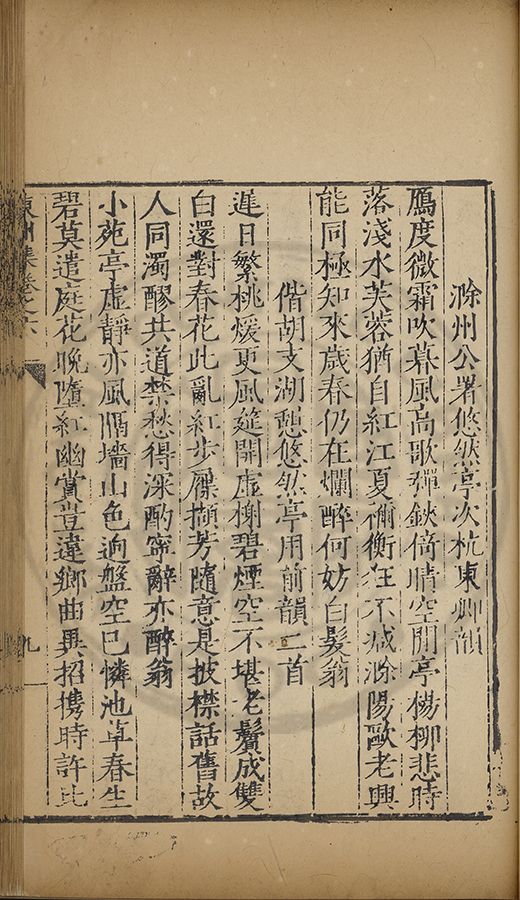 滁州公署悠然亭次杭東卿韻
鴈度微霜吹暮風高歌彈鋏倚晴空閒亭楊柳悲時
落淺水芙蓉猶自紅江夏禰衡狂不減滁陽歐老興
能同極知來歲春仍在爛醉何妨白髮翁
偕胡支湖憩悠然亭用前韻二首
遲日繁桃煖更風筵開虛榭碧煙空不堪老鬢成雙
白還對春花此亂紅步屧擷芳隨意是披襟話舊故
人同濁醪共道禁愁得深酌寧辭亦醉翁
小苑亭虛靜亦風隔墻山色逈盤空已憐池草春生
碧莫遣庭花晚墮紅幽賞豈違鄉曲興招攜時許此
東州集卷之六
九